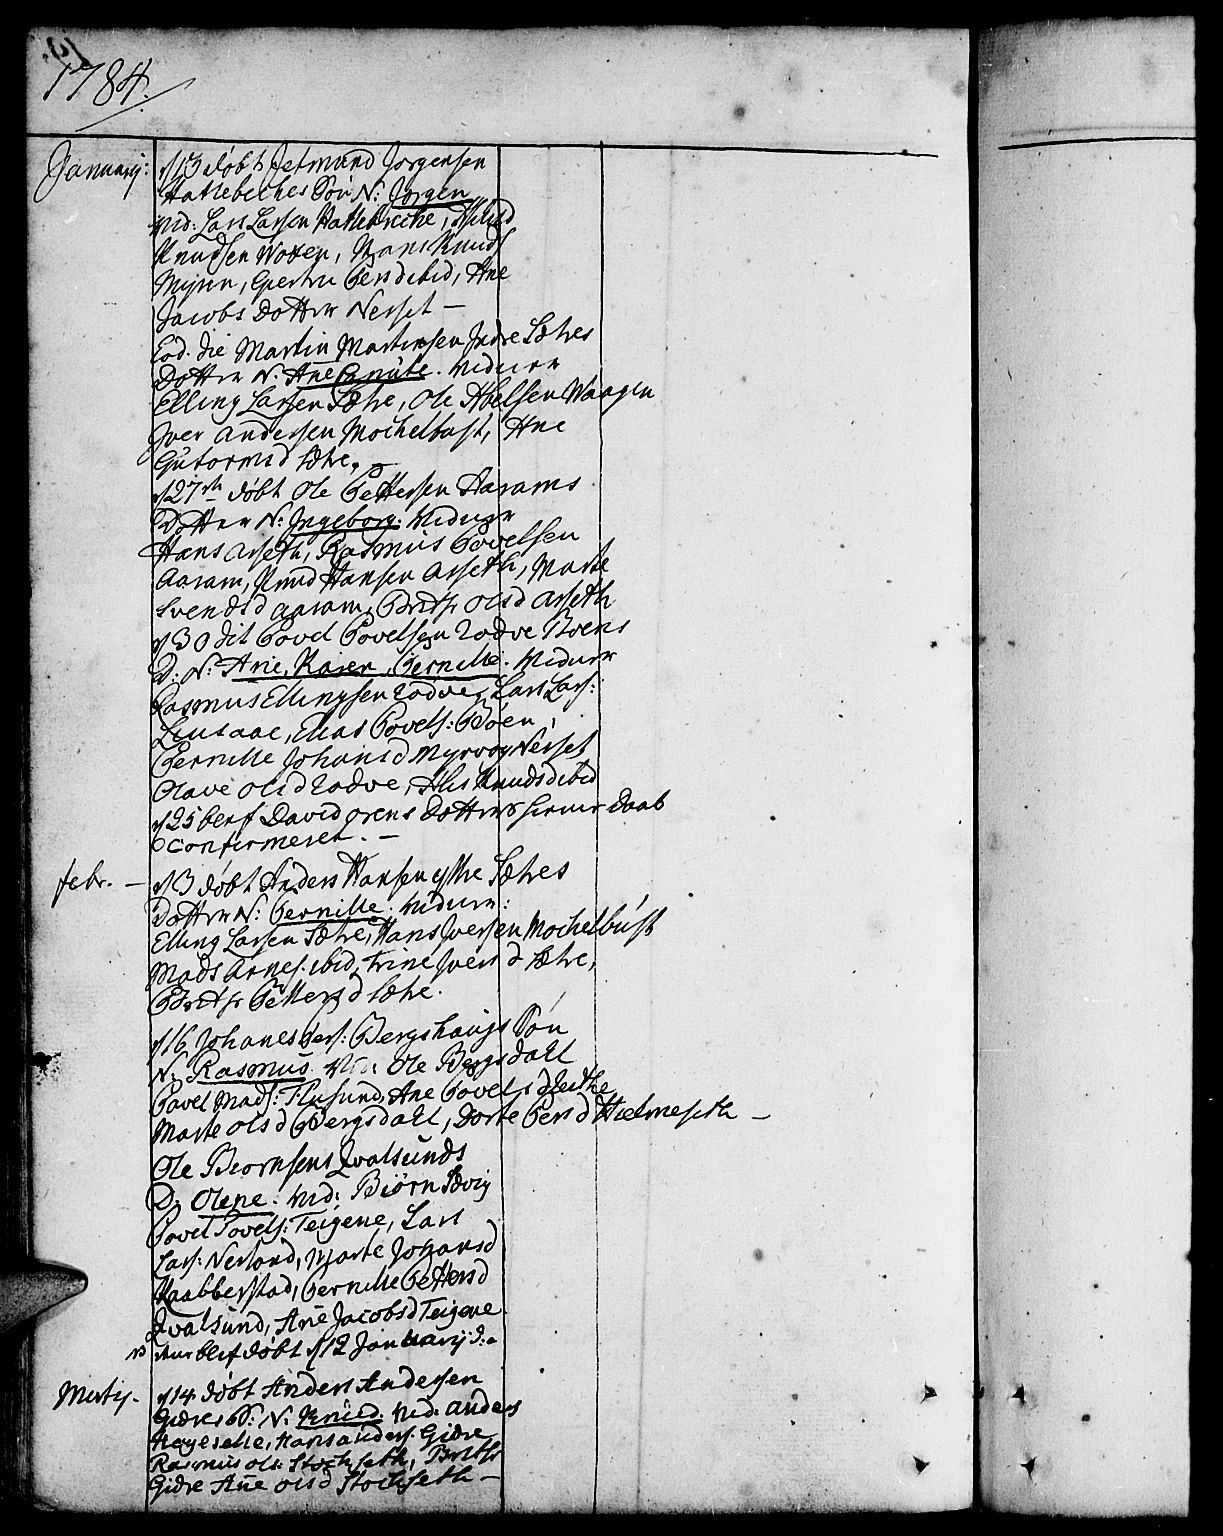 1784.
Januarij: d 13 døbt Jetmund Jørgensen
Hatlebechs Søn N: Jørgen
Vid: Lars Larsen Hatlebreche,
Knudsen Woxen, Hans Knuds
Myren, Giertru Persd ibid, Ane
Jacobs Dotter Nerset -
Eod. die Martin Martinsen Indre Sæhres
Dotter N: Ane Gunile. Viduer
Elling Larsen Sæhre, Ole Abelsen Waagen
Iver Andersen Mochelbust, Ane
Gutormsd Sæhre.
d 27de døbt Ole Pettersen Aarams
Dotter N: Ingeborg: Viduer
Hans Arseth, Rasmus Povelsen
Aaram, Knud Hansen Arseth, Marte
Svendsd Aaram, Brite Olsd Arseth
d 30 dit Povel Povelsen Rødve Boens
D: N: Ane, Karen, Pernille. Viduer
Rasmus Ellingsen Rødve, Lars Lars:
Leusaae, Elias Povels: Bøen,
Pernille Johansd Myrvog Nerset
Olave Olsd Rødve, Alis Knudsd ibid
d 25 blef David Orens Dotters hieme Daab
Confirmeret. -
febr. - d 3 døbt Anders Hansen Ytre Sæhres
Dotter N: Pernille. Viduer:
Elling Larsen Sæhre, Hans Iversen Mochelbust
Mads Arnes. ibid, Trine Ivers d Sæhre,
Brite Petters d Sæhre.
d 16 Johanes Pers: Bergshaugs Søn
N: Rasmus. Vid: Ole Bergsdall
Povel Mads: Flusund, Ane Povels d
Marte Olsd Bergsdall, Dorte Pers d Hielmeseth -
Ole Biørnsens Qvalsunds
D: Olene. Vid: Biørn Sævig
Povel Povels: Teigene, Lars
Lars: Nerland, Marte Johansd
Kaabberstad, Pernille Pettersd
Qvalsund, Ane Jacobsd Teigene
blef døbt d 12 Januarij: d:
Martij. d 14 døbt Anders Andersen
Gidres S: N: Knud. Vid: Anders
Hans Anders: Gidre
Rasmus Ols: Stochseth, Brite
Gidre Ane Olsd Stochseth -